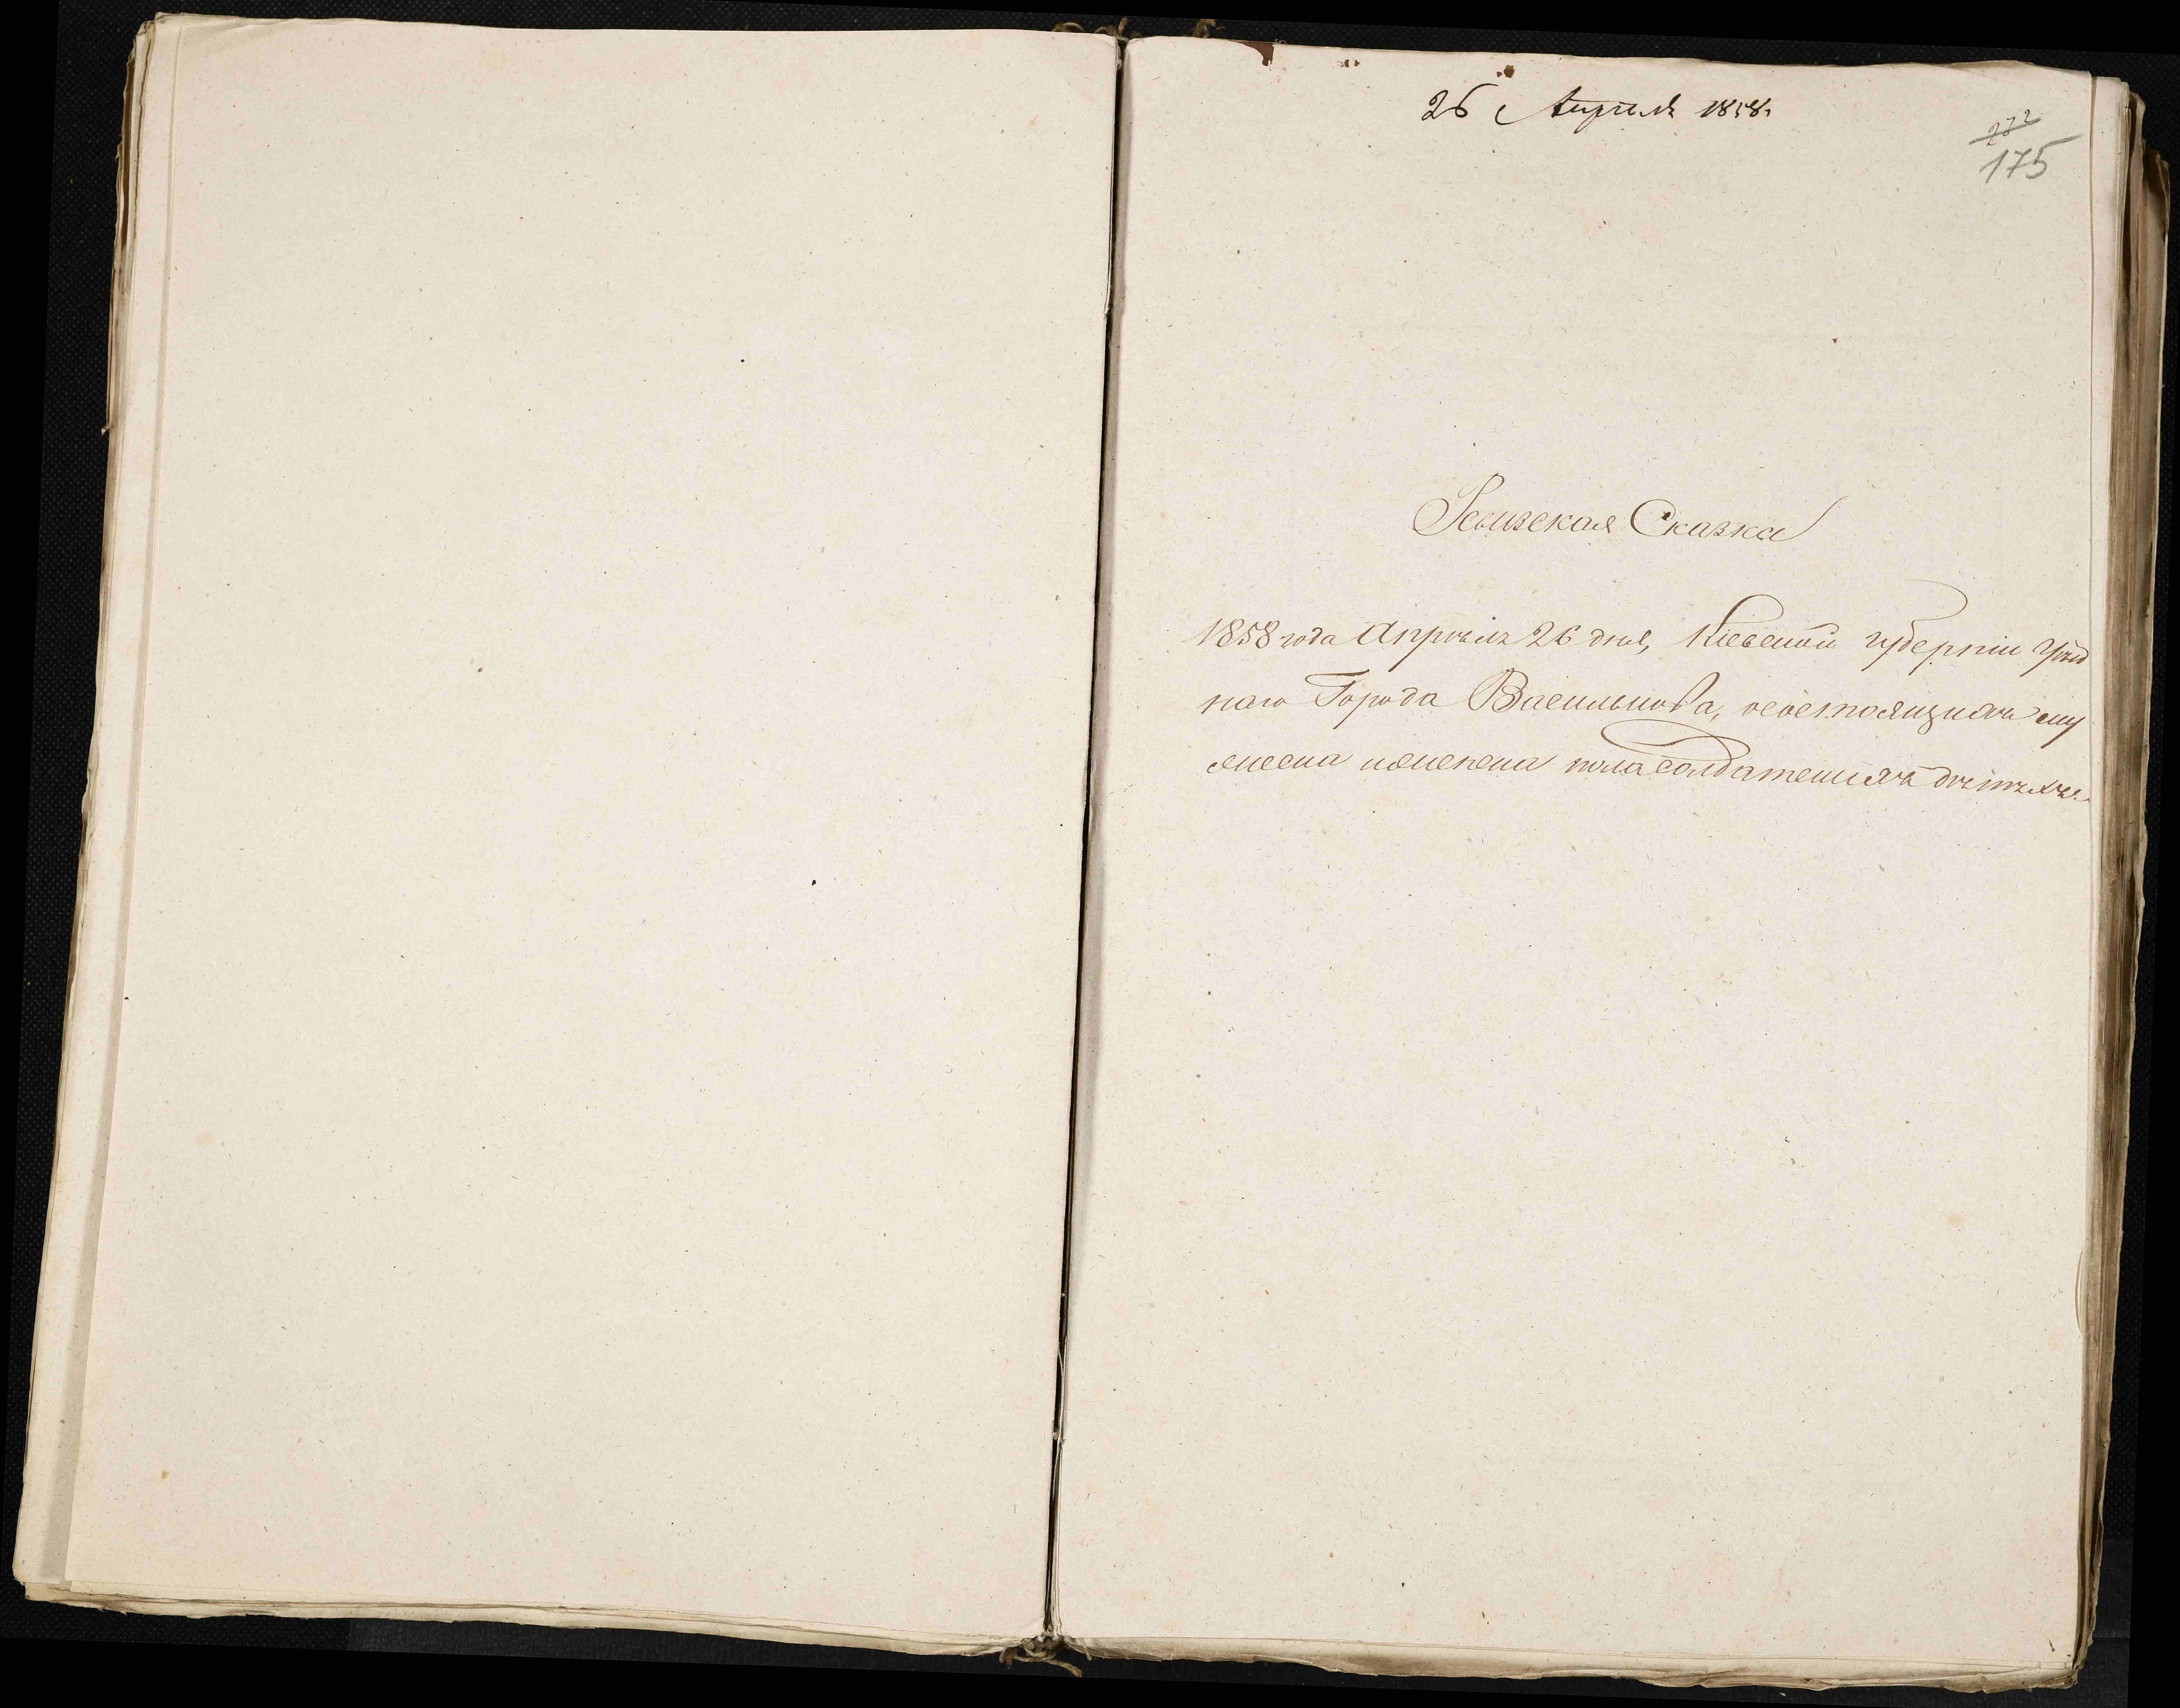 26 Апреля 1858.
272
175
Ревизская Сказка
1858 года Апреля 26 дня, Кіевской губерніи Уѣзд
наго Города Василькова, о состоящихъ му
жеска и женска пола солдатскихъ дѣтяхъ.